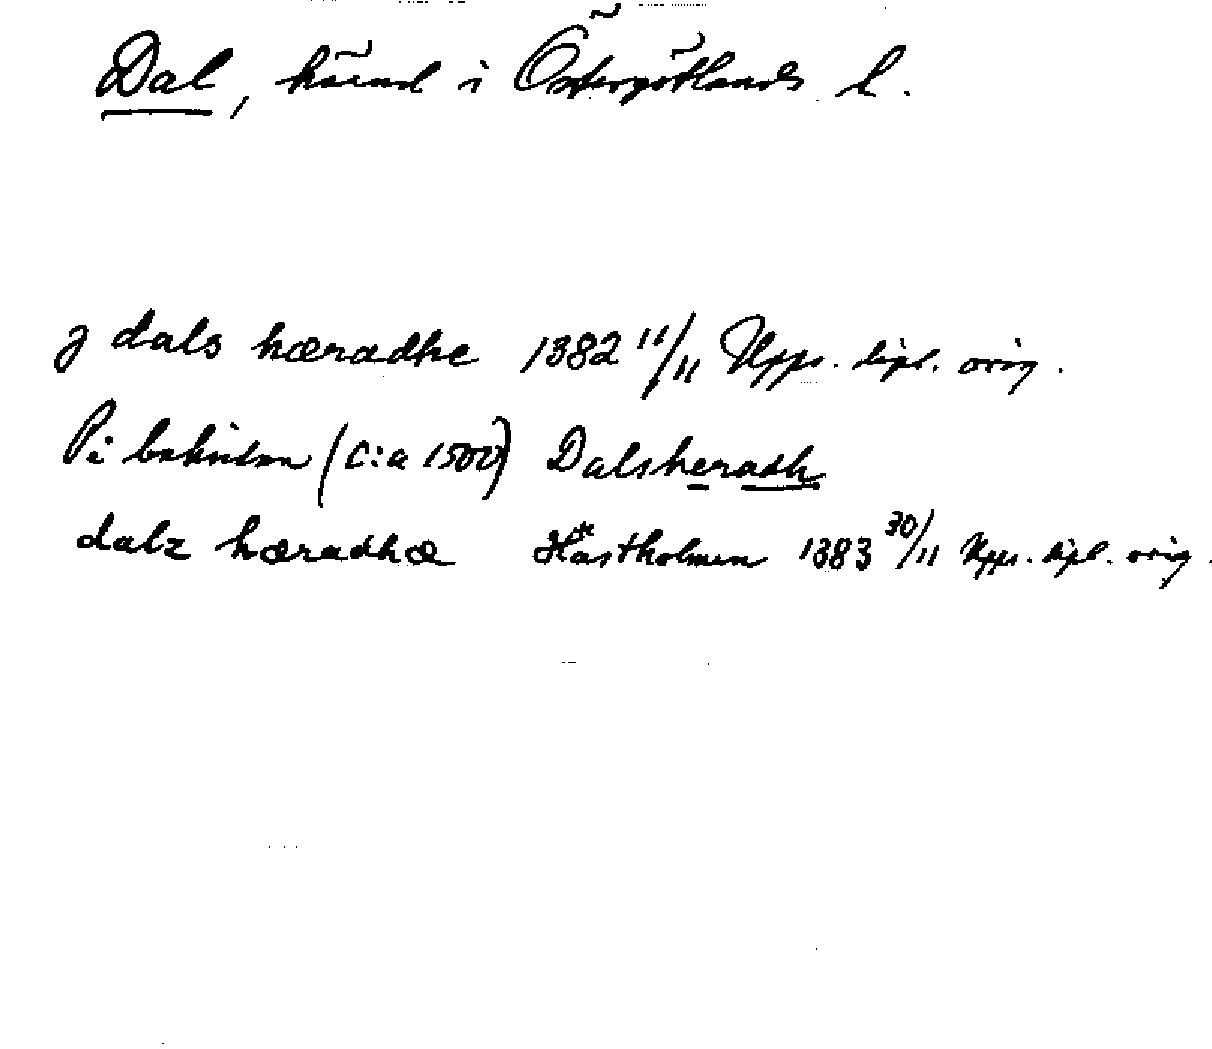 Dal, härad i Östergötlands l.
J dals hæradhe 1382 11/11 Upps. dipl. orig.
På baksidan (c:a 1500) Dalsheradh
dalz hæradhæ Hästholmen 1383 30/11 Upps. dipl. orig.